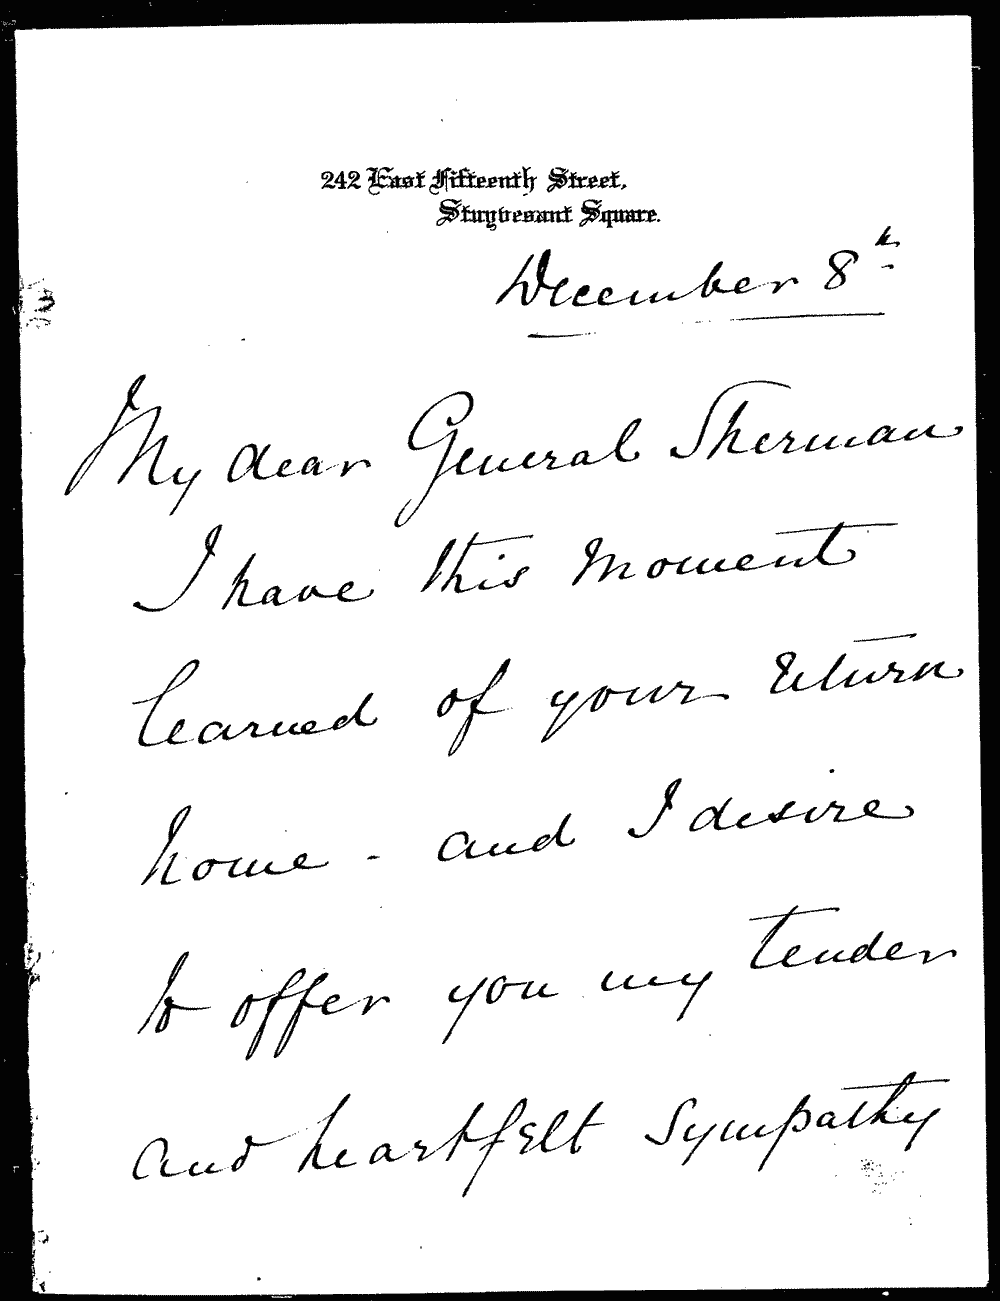 242 East Fifteenth Street,
Stuyvesant Square.
December 8th
My dear General Sherman
I have this moment
learned of your return
home - and I desire
to offer you my tender
and heartfelt sympathy